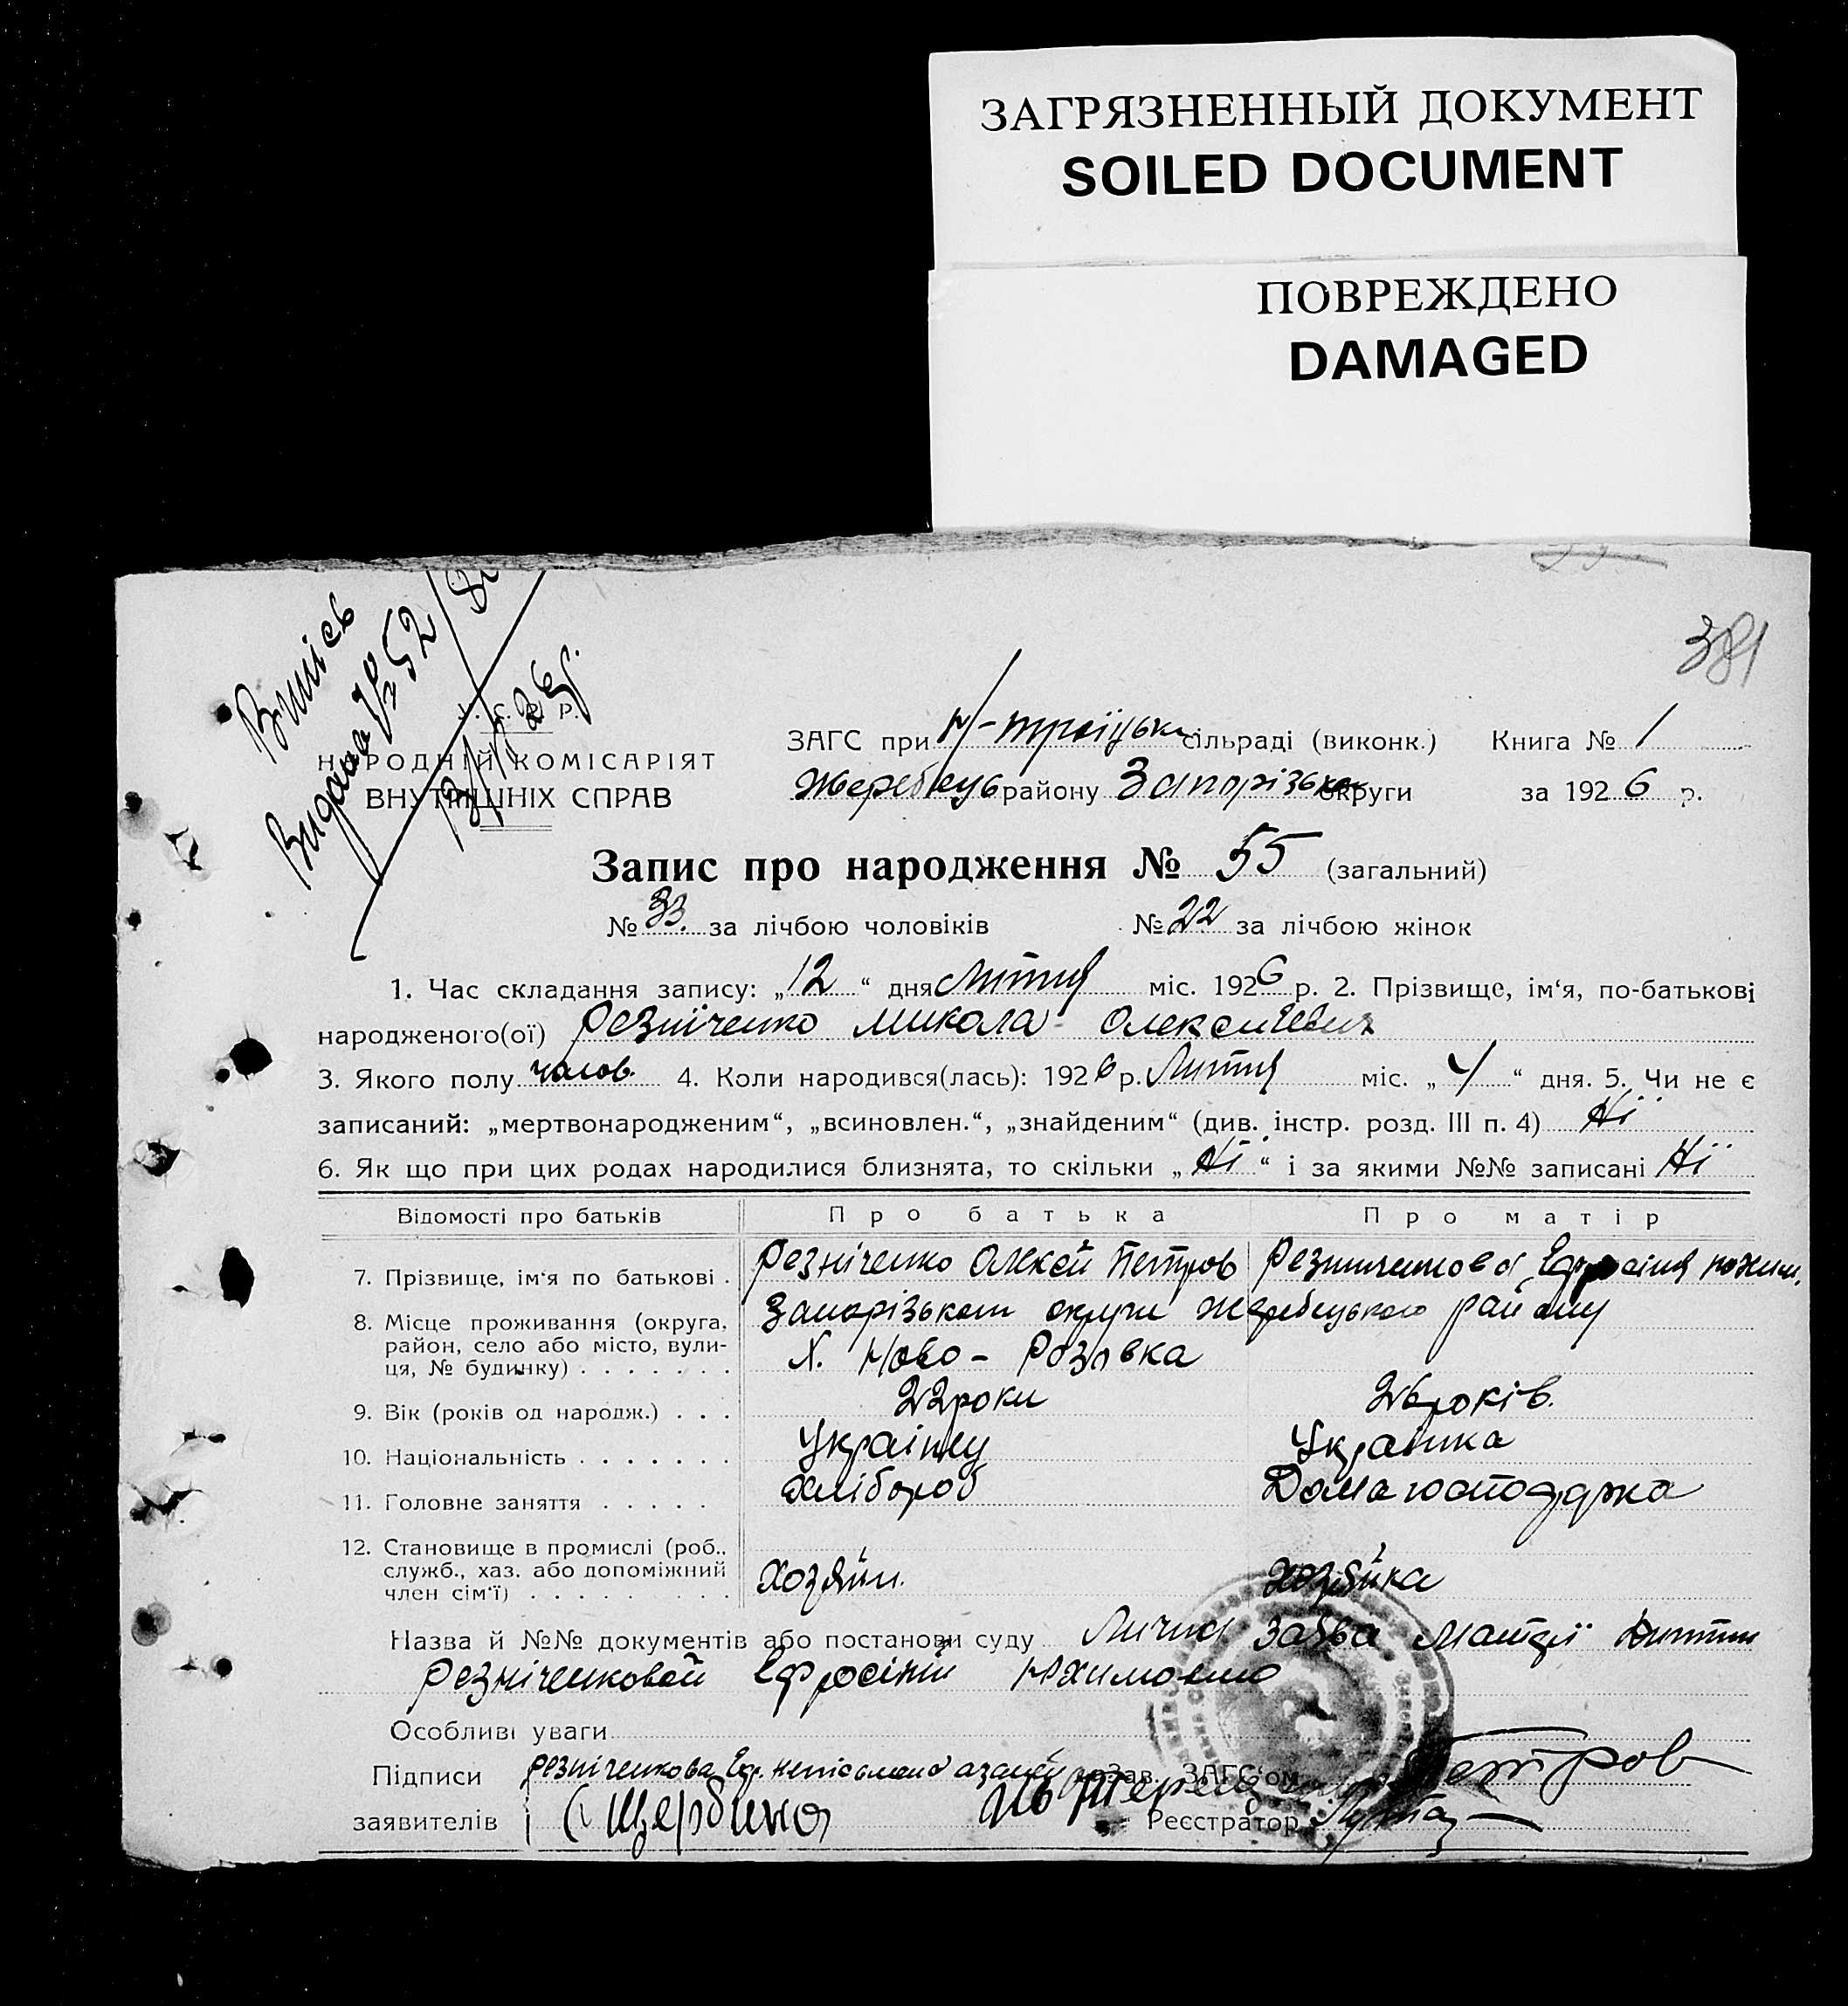 ЗАГРЯЗНЕННЫЙ ДОКУМЕНТ
SOILED DOCUMENT
ПОВРЕЖДЕНО
DAMAGED
381
У. С. Р. Р.
НАРОДНІЙ КОМІСАРІЯТ
ВНУТРІШНІХ СПРАВ
ЗАГС при Н-Троїцьки сільраді (виконк.) Книга № 1
Жеребець району Запорізько округи за 1926 р.
Запис про народження № 55 (загальний)
№ 33. за лічбою чоловіків № 22 за лічбою жінок
1. Час складання запису: „12“ дня Лютня міс. 1926 р. 2. Прізвище, ім‘я, по-батькові
народженого(ої) Резніченко Микола Олексиевич
3. Якого полу чолов. 4. Коли народився(лась): 1926 р. Лютня міс. „4“ дня. 5. Чи не є
записаний: „мертвонародженим“, „всиновлен.“, „знайденим“ (див. інстр. розд. III п. 4) Ні
6. Як що при цих родах народилися близнята, то скільки „Ні“ і за якими №№ записані Ні
Відомості про батьків Про батька Про матір
7. Прізвище, ім‘я по батькові . Резніченко Олексій Петров Резниченкова Ефросіня
8. Місце проживання (округа, район, село або місто, вули-ця, № будинку) . . . . . . . Запорізькот округи Жеребецького району
Х. Ново-Розовка
9. Вік (років од народж.) . . . 22 роки 26 років.
10. Національність . . . . . . . Українец Українка
11. Головне заняття . . . . . Хлібороб Домагосподарка
12. Становище в промислі (роб., служб., хаз. або допоміжний член сім‘ї) . . . . . . . . . Хозяйин. Хозяйка
Назва й №№ документів або постанови суду Лична заява Матері дитини
Резніченковой Ефросіній
Особливі уваги
Підписи Резніченкова Еф. за Зав. ЗАГС‘ом Петров
заявителів Щербина Реєстратор